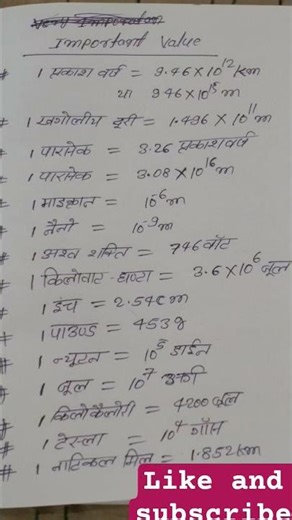 Important Value
# 1 प्रकाश वर्ष = 9.46×10¹² km
या 946×10¹⁵ m
# 1 खगोलीय दूरी = 1.496×10¹¹ m
# 1 पारसेक = 3.26 प्रकाशवर्ष
# 1 पारसेक = 3.08×10¹⁶ m
# 1 माइक्रान = 10⁻⁶ m
# 1 नैनो = 10⁻⁹ m
# 1 अश्व शक्ति = 746 वॉट
# 1 किलोवाट-घण्टा = 3.6×10⁶ जूल
# 1 इंच = 2.54cm
# 1 पाउण्ड = 453g
# 1 न्यूटन = 10⁵ डाईन
# 1 जूल = 10⁷ अर्ग
# 1 किलोकैलोरी = 4200 जूल
# 1 टेस्ला = 10⁴ गॉस
# 1 नाटिकल मिल = 1.852km
Like and
subscribe